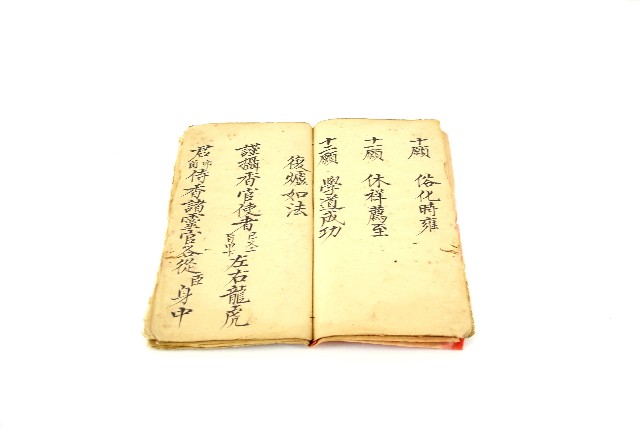 十願 俗化時雍
十一願 休祥薦至
十二願 學道成功
復爐如法
謹攝香官使者 左右龍虎
君 侍香諸靈官各從臣身中